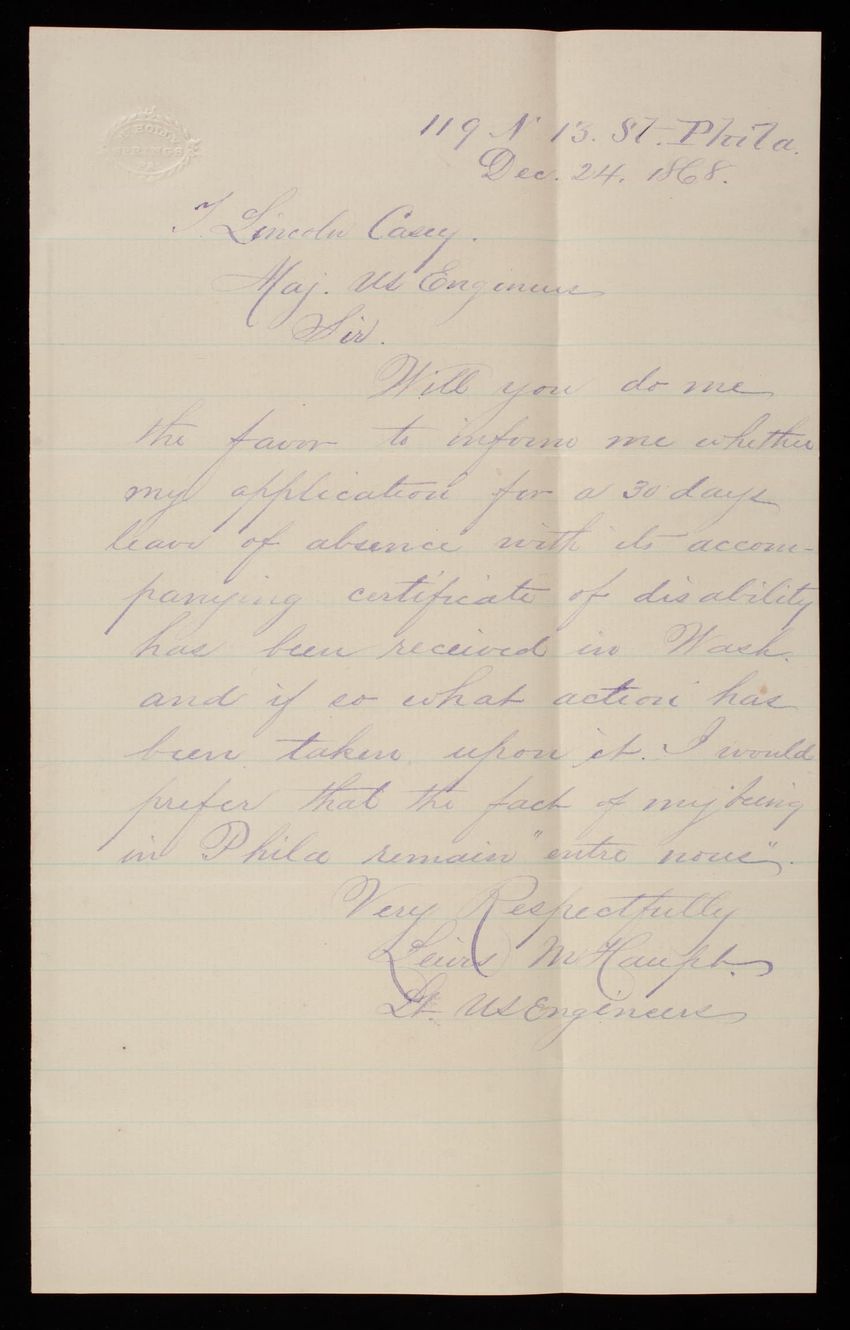 HOLLY
SPRINGS
PA
119 N 13. St. Phila.
Dec. 24. 1868.
T Lincoln Casey.
Maj. US Engineers
Sir.
Will you do me
the favor to inform me whether
my application for a 30 days
leave of absence with its accom-
panying certificate of disability
has been received in Wash.
and if so what action has
been taken upon it. I would
prefer that the fact of my being
in Phila remain "entre nous".
Very Respectfully
Lewis M Haupt.
Lt. US Engineers